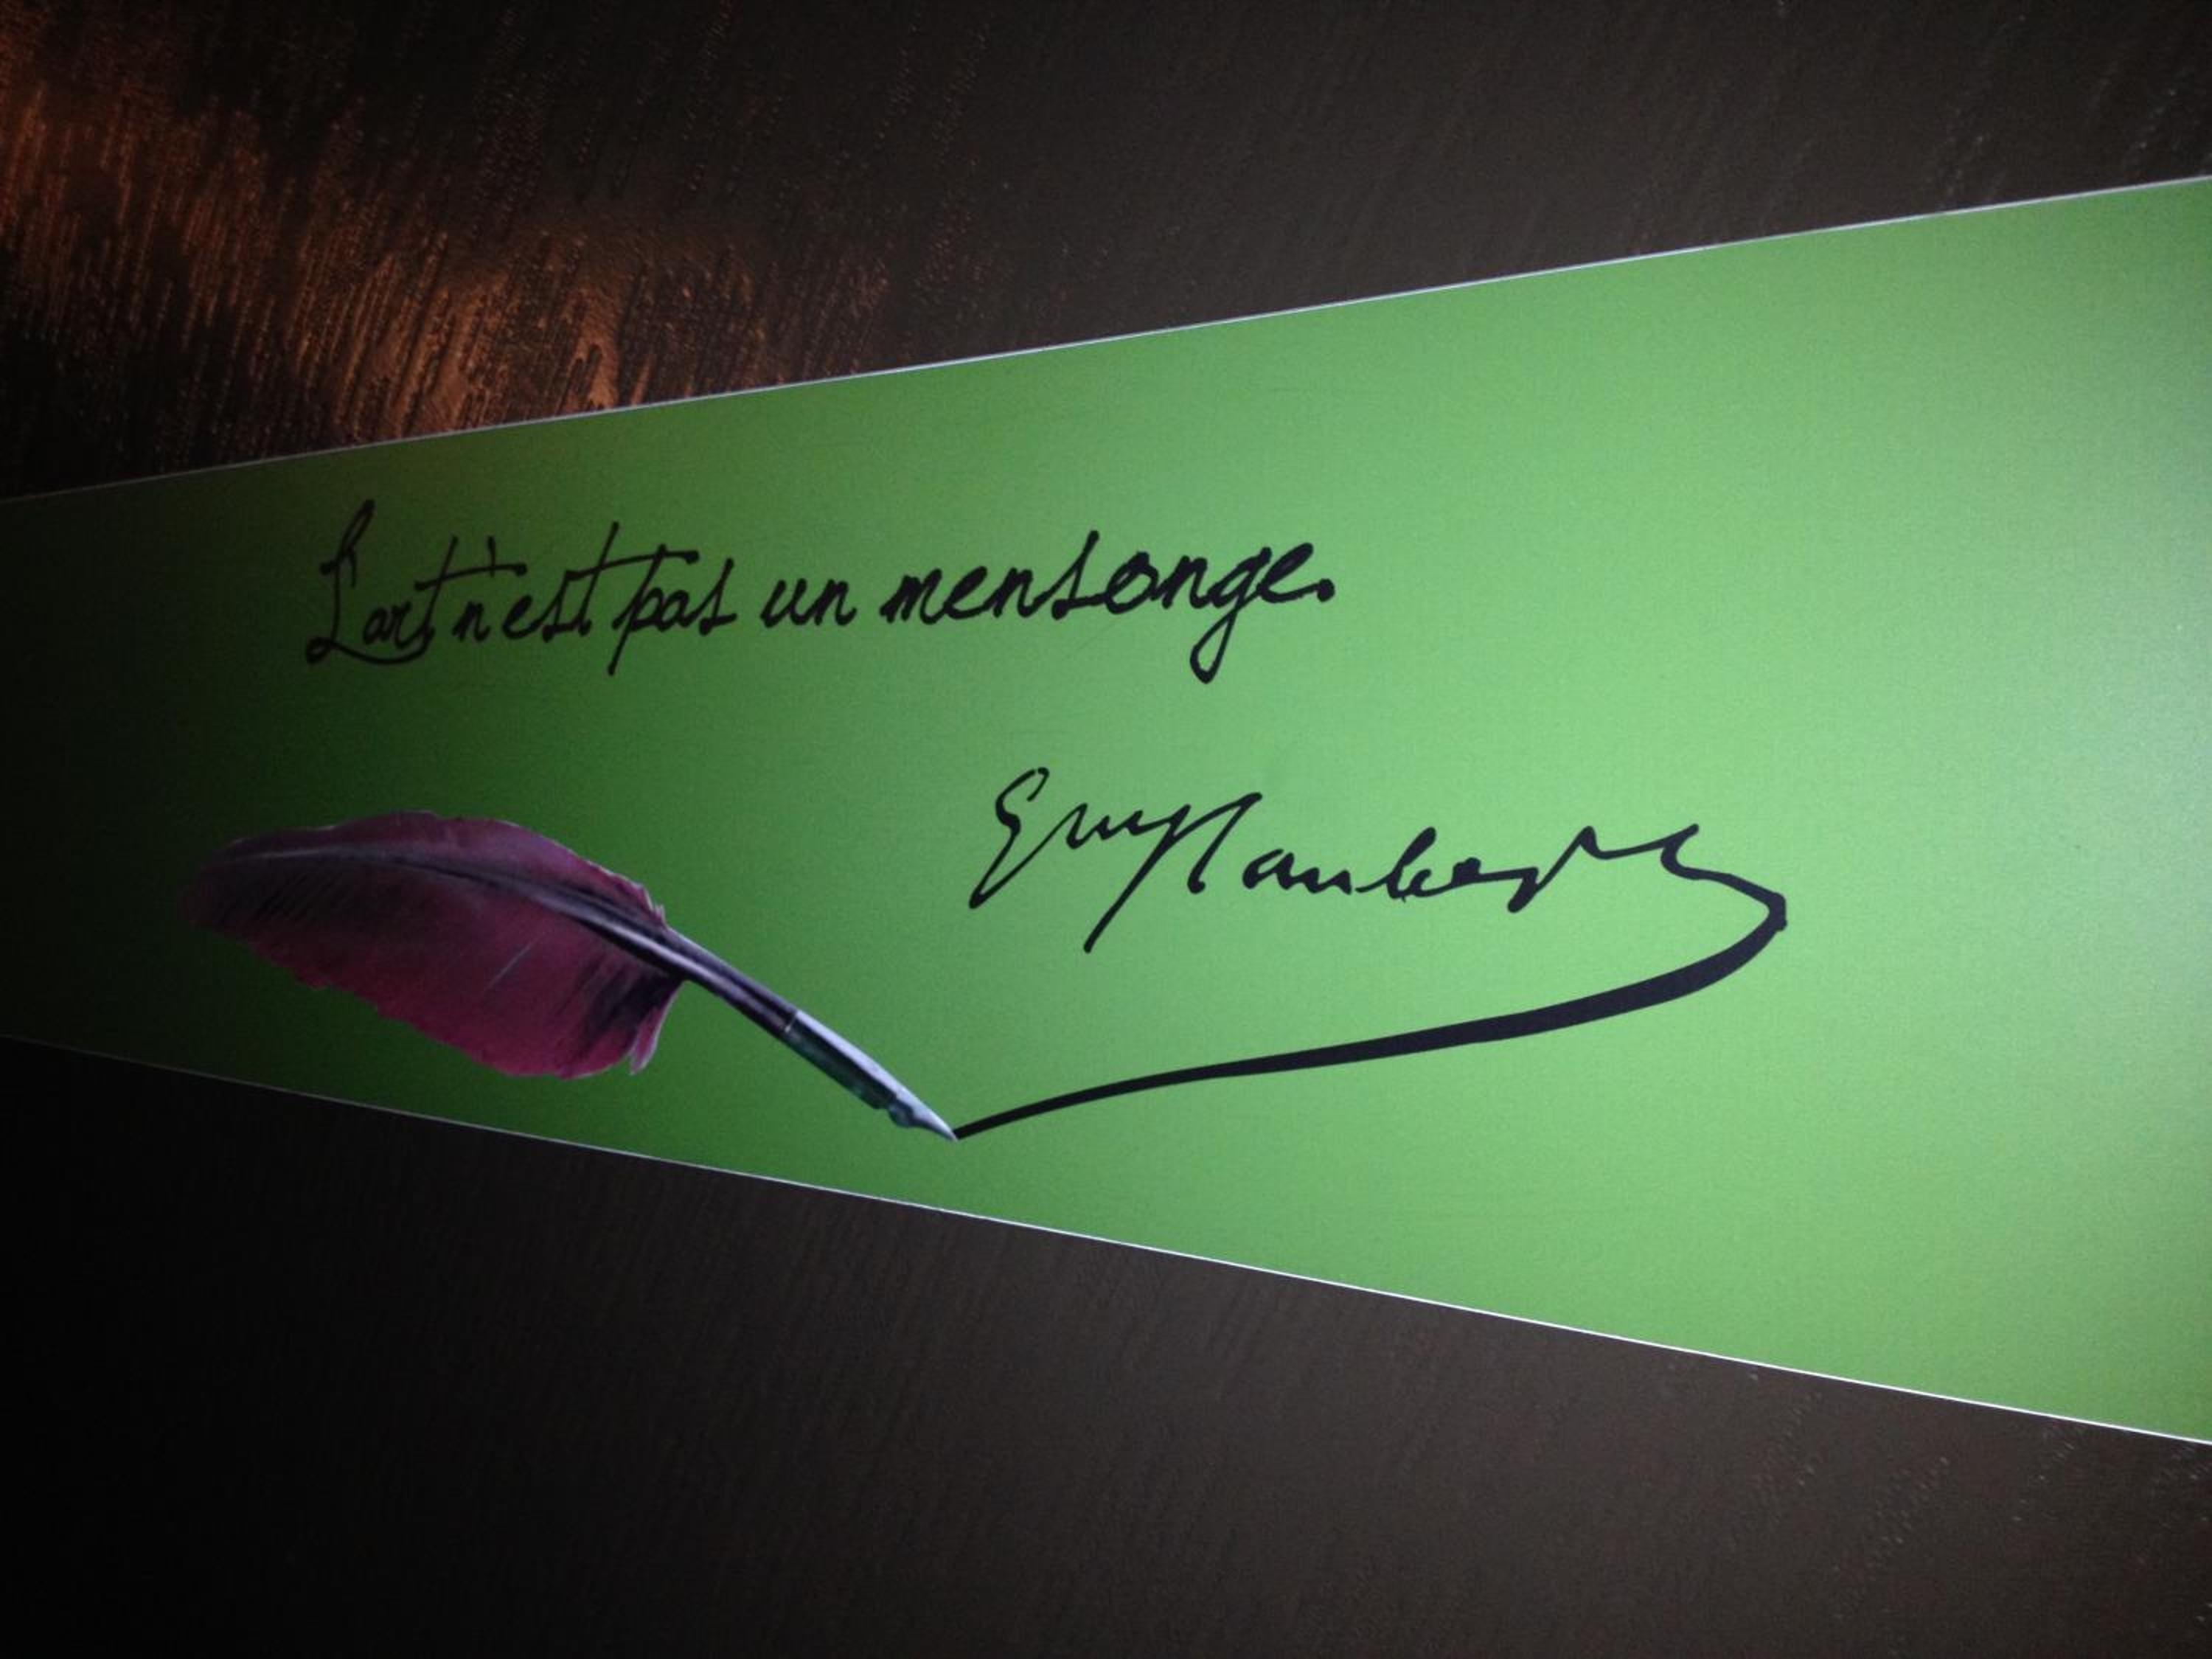 L'art n'est pas un mensonge.
Gve Flaubert